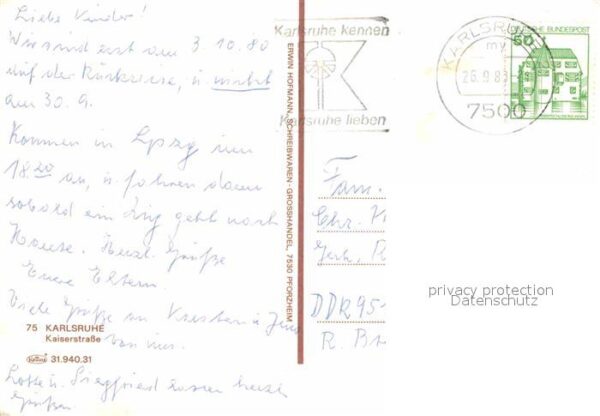 Liebe Kinder!
Wir sind erst am 3.10.80
auf der Rückreise, u. nicht
am 30.9.
Kommen in Lpzg um
18.20 an, u. fahren dann
sobald ein Zug geht nach
Hause. Herzl. Grüße
Eure Eltern.
Viele Grüße an Kirsten u. Jens
von uns.
75 KARLSRUHE
Kaiserstraße
31.940.31
Lotte u. Siegfried lassen herzl.
grüßen.
ERWIN HOFMANN, SCHREIBWAREN-GROSSHANDEL, 7530 PFORZHEIM
Karlsruhe kennen
Karlsruhe lieben
KARLSRUHE
my
26.9.83
7500
DEUTSCHE BUNDESPOST
50
Fam.
Chr.
Gerh.
DDR 95
R.
privacy protection
Datenschutz